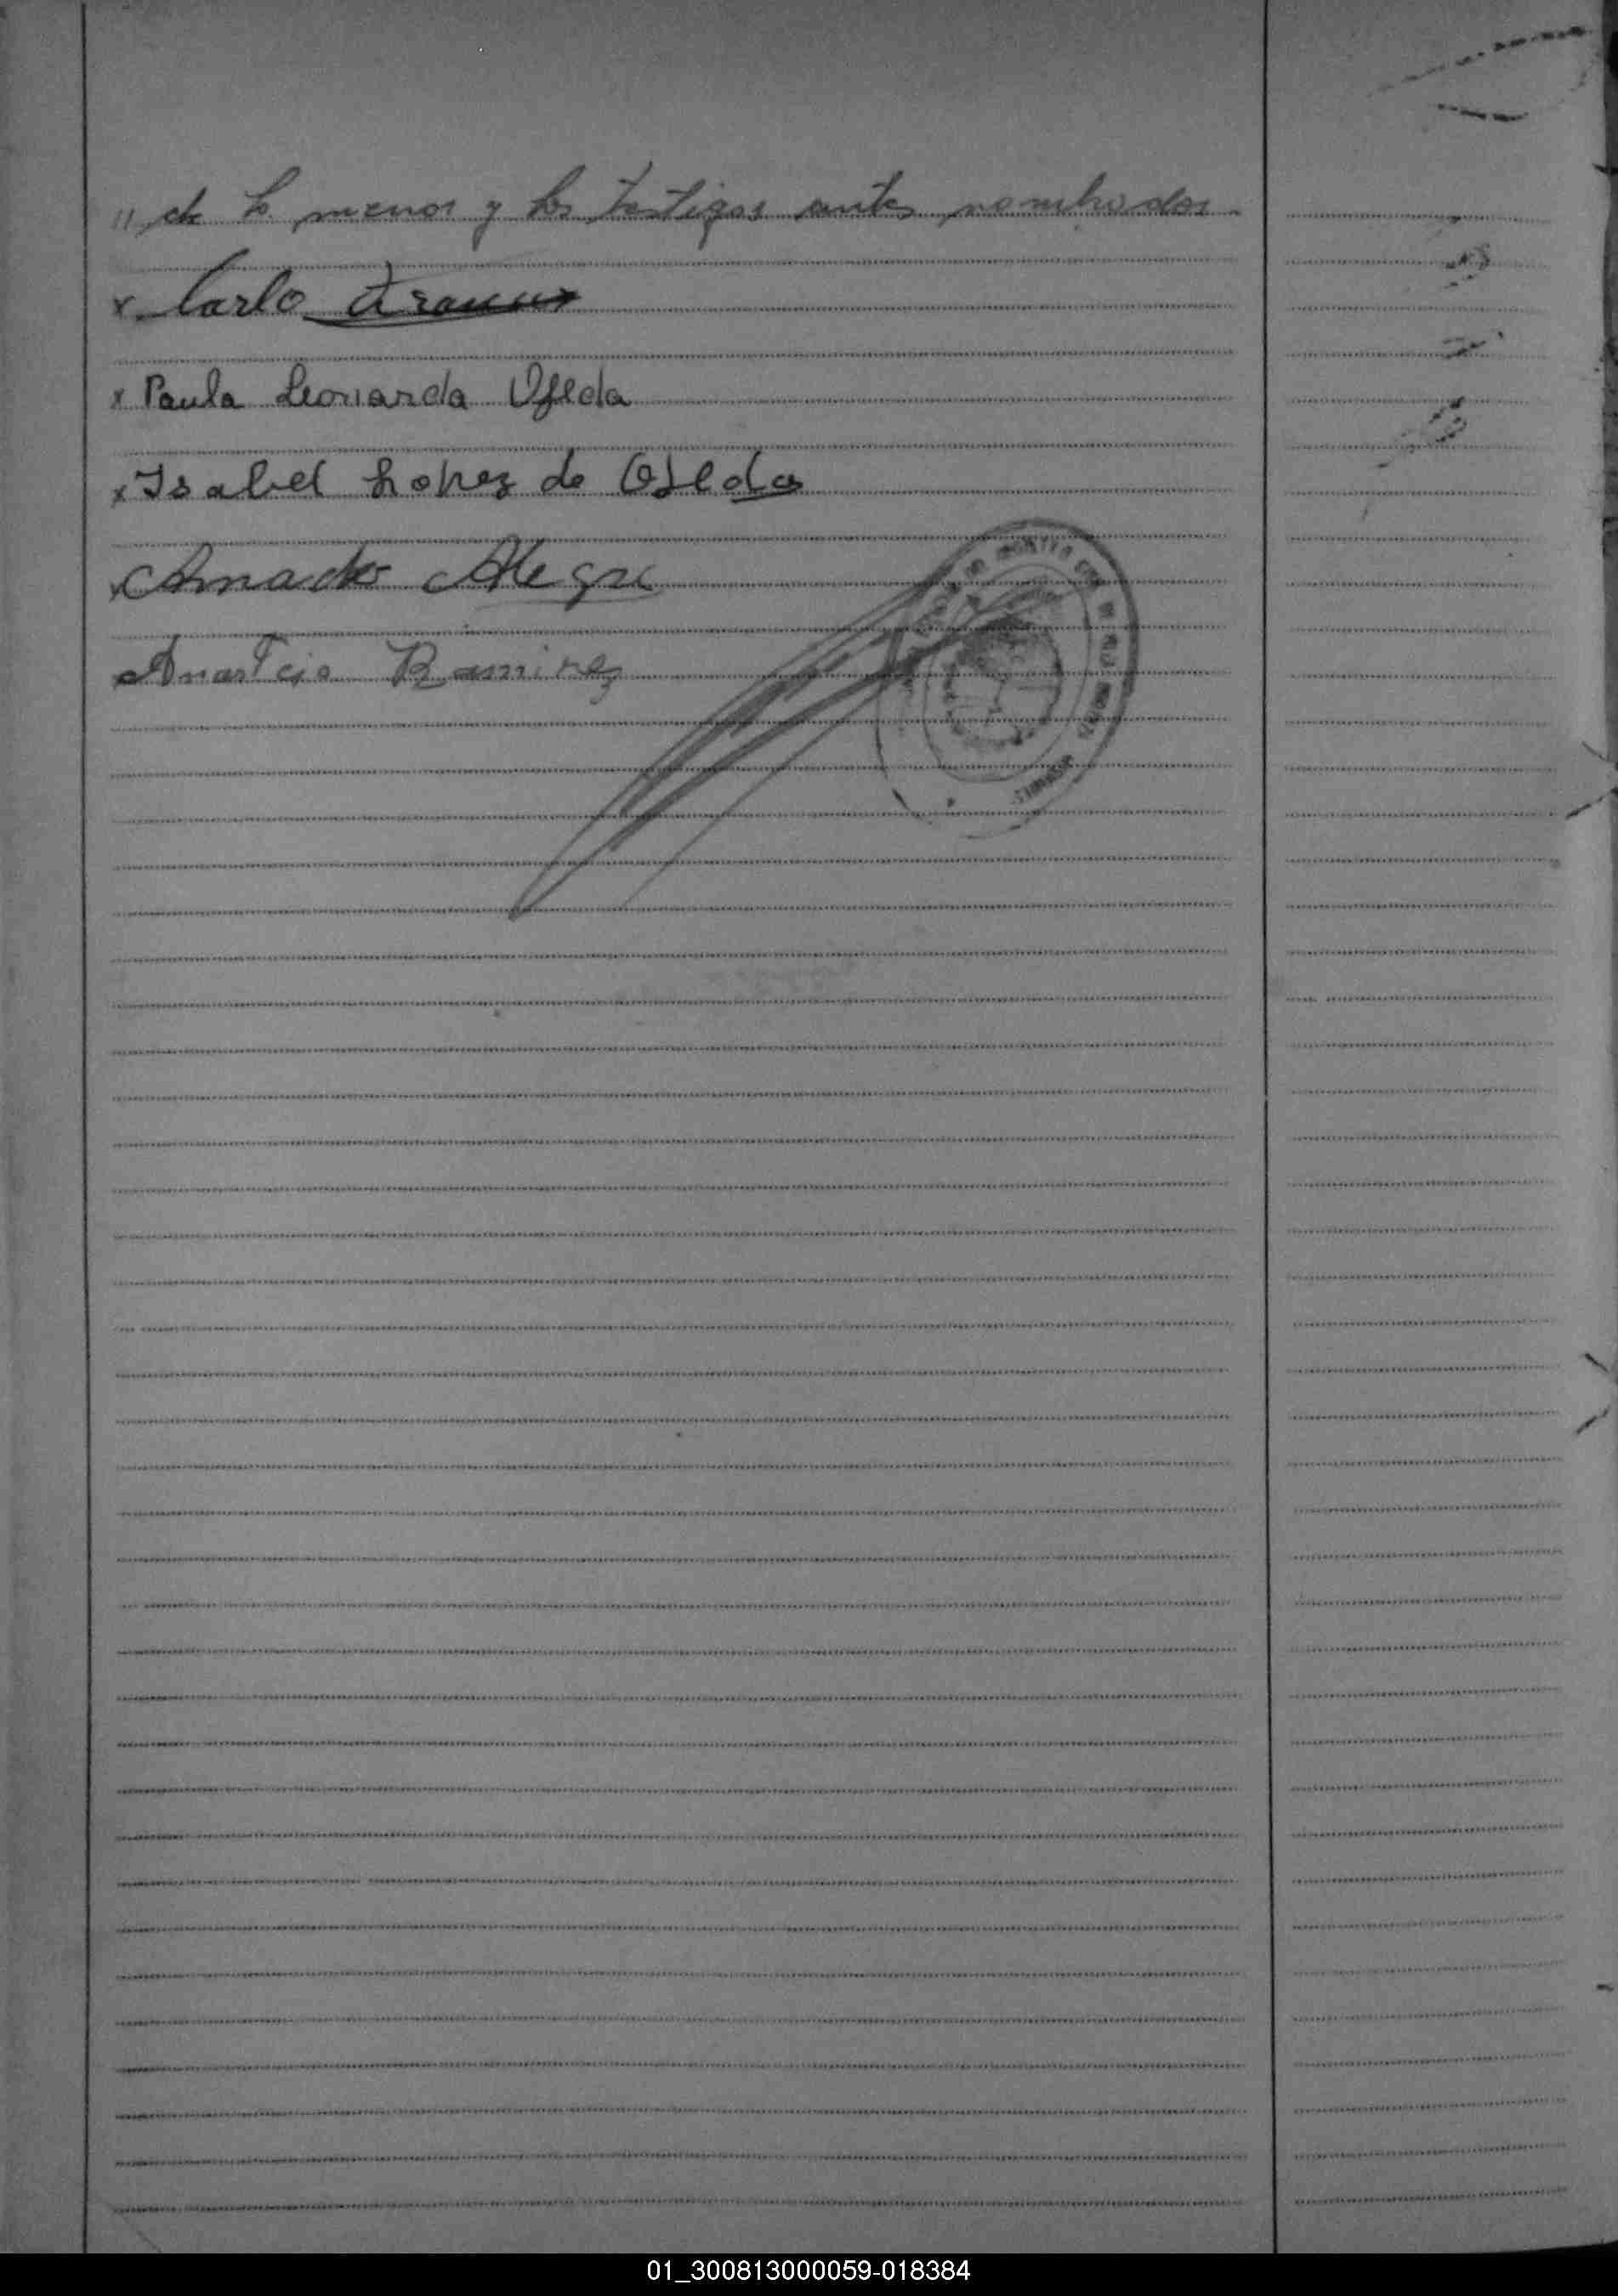 " de la menor y los testigos antes nombrados.
x Carlo
x Paula Leonarda Ojeda
x Isabel Lopez de Ojeda
x Amado Alegre
Anastcio Ramirez
01_300813000059-018384